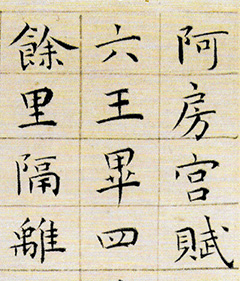 阿房宮賦
六王畢四
餘里隔離